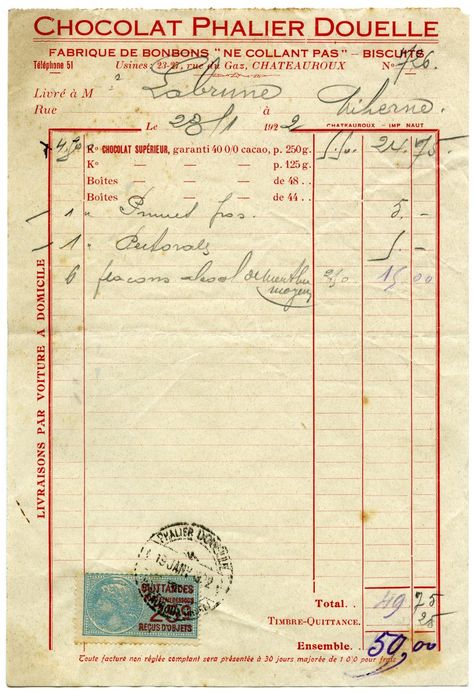 CHOCOLAT PHALIER DOUELLE
FABRIQUE DE BONBONS "NE COLLANT PAS" – BISCUITS
Téléphone 51 Usines: 23-27, rue du Gaz, CHATEAUROUX N° 726
Livré à M à Labrune
Rue à Thiherne.
CHATEAUROUX - IMP NAUT
Le 23/1 1922
4.50 K° CHOCOLAT SUPÉRIEUR, garanti 40 0/0 cacao, p. 250g. 5.50 24 75
K° — — — p. 125g.
Boîtes — — de 48 . .
Boîtes — — de 44 . .
1 " 5 -
1 " Pectorale 5 -
6 flacons alcool de menthe 2.50 15,00
moyen
LIVRAISONS PAR VOITURE A DOMICILE
PHALIER DOUELLE
19 JANV
QUITTANCES
REÇUS D'OBJETS
Total. . 49 75
TIMBRE-QUITTANCE. 25
Ensemble. . 50,00
Toute facture non réglée comptant sera présentée à 30 jours majorée de 1 0/0 pour frais